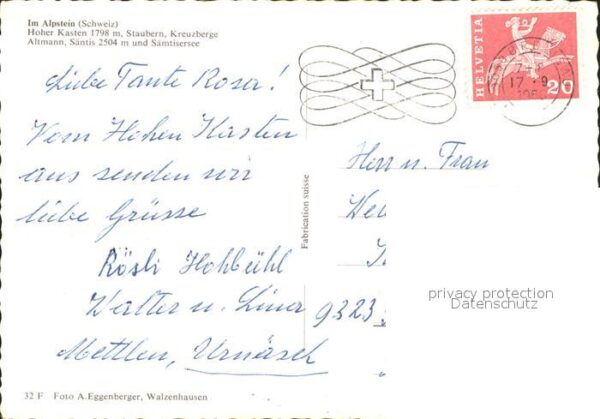 Im Alpstein (Schweiz)
Hoher Kasten 1798 m, Staubern, Kreuzberge
Altmann, Säntis 2504 m und Sämtisersee
Liebe Tante Rosa!
Vom Hohen Kasten
aus senden wir
liebe Grüsse
Rösli Hohbühl
Walter u. Lina
Mettlen, Urnäsch
32 F Foto A.Eggenberger, Walzenhausen
Fabrication suisse
HELVETIA
20
17
Herr u. Frau
9323
privacy protection
Datenschutz